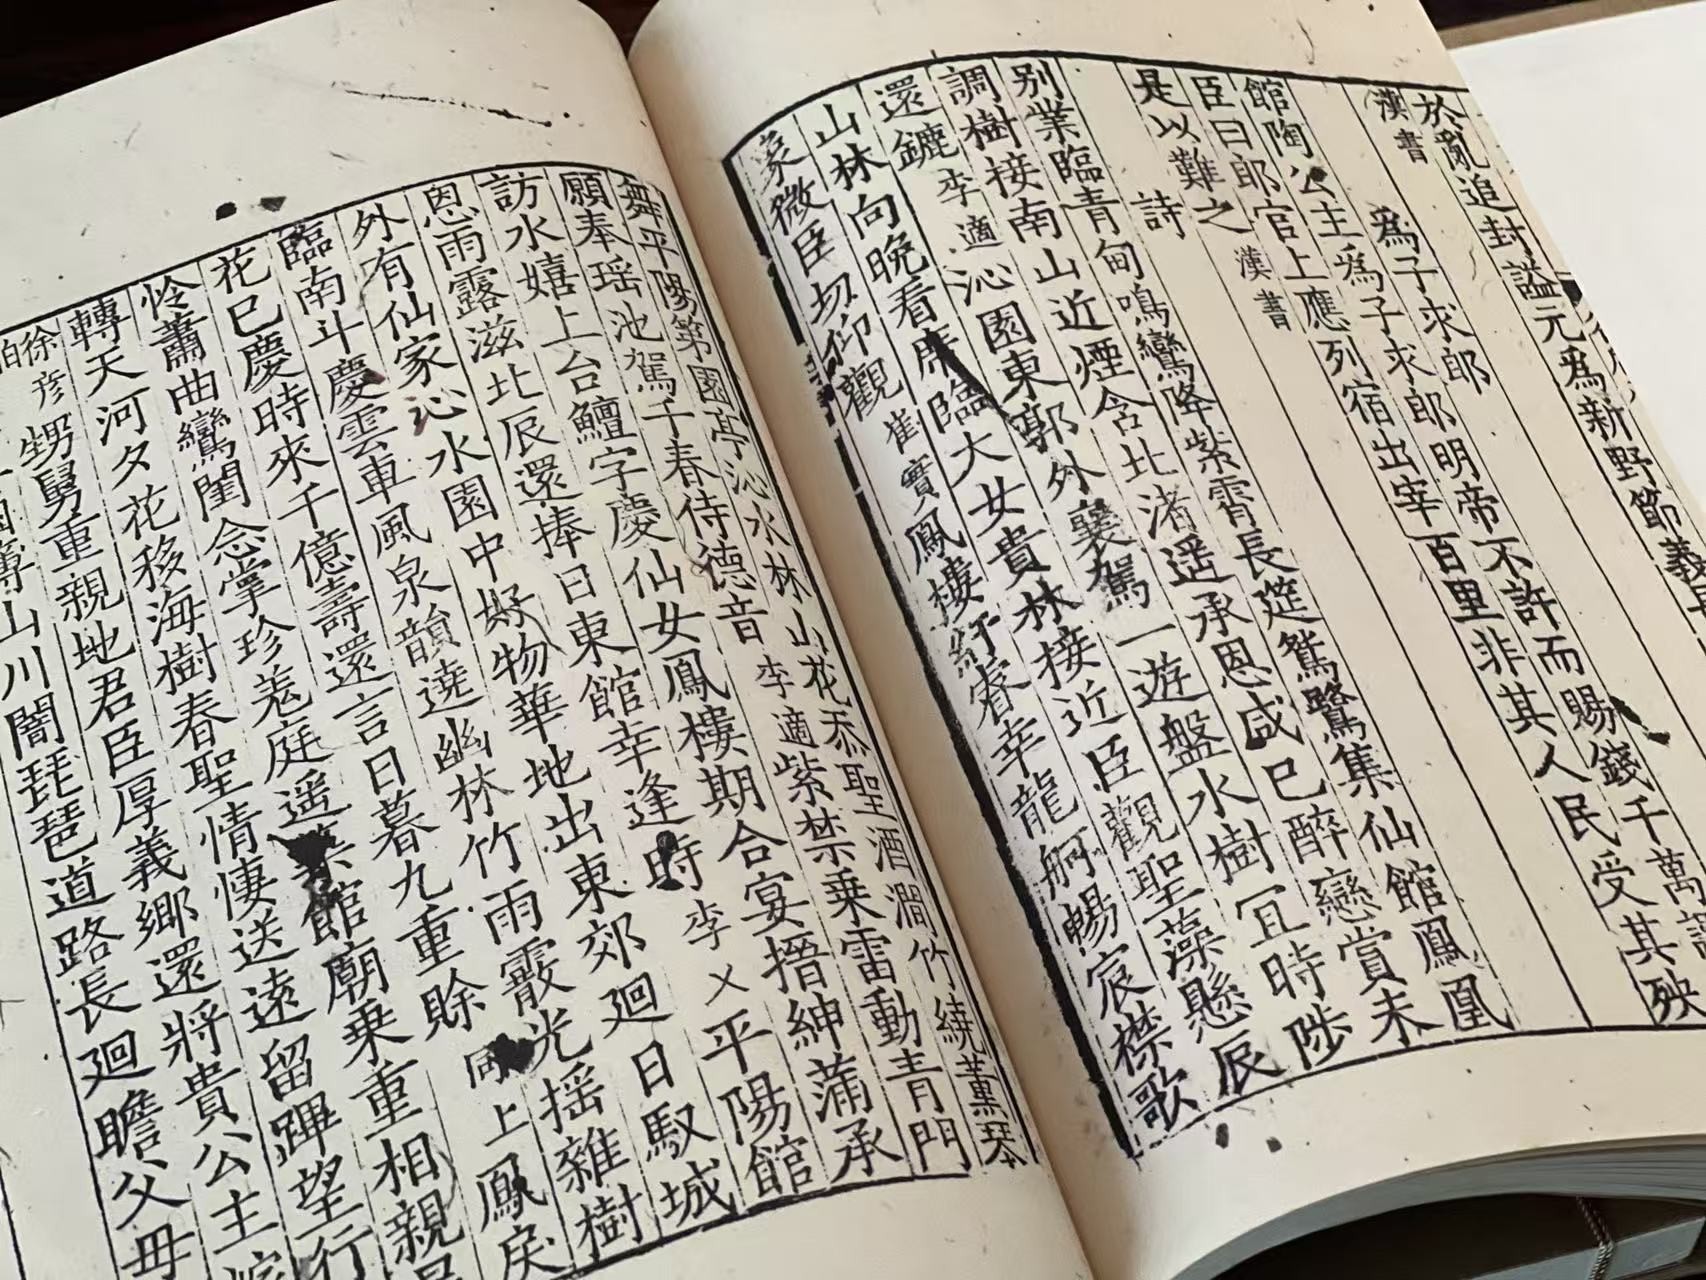 於亂追封謚元爲新野節義
漢書
爲子求郎
館陶公主爲子求郎明帝不許而賜錢千萬謂
臣曰郎官上應列宿出宰百里非其人民受其殃
是以難之 漢書
詩
別業臨青甸鳴鑾降紫霄長筵鵷鷺集仙館鳳凰
調樹接南山近煙含北渚遥承恩咸已醉戀賞未
還鑣 李適 沁園東郭外襄駕一遊盤水樹宜時陟
山林向晚看席臨大女貴林接近臣觀聖藻懸辰
象微臣切仰觀 崔實 鳳樓紆睿幸龍舸暢宸襟歌
舞平陽第園亭沁水林山花忝聖酒澗竹繞薰琴
願奉瑶池駕千春侍德音 李適 紫禁乗雷動青門
訪水嬉上台鱣字慶仙女鳳樓期合宴搢紳滿承
恩雨露滋北辰還捧日東館幸逢時 李乂 平陽館
外有仙家沁水園中好物華地出東郊廻日馭城
臨南斗慶雲車風泉韻遶幽林竹雨霰光摇雜樹
花已慶時來千億壽還言日暮九重賒 同上 鳳扆
憐蕭曲鸞閨念掌珍羗庭遥築館廟乗重相親
轉天河夕花移海樹春聖情悽送遠留蹕望行
徐彦伯 甥舅重親地君臣厚義鄉還將貴公主嫁
山川闇琵琶道路長廻瞻父母